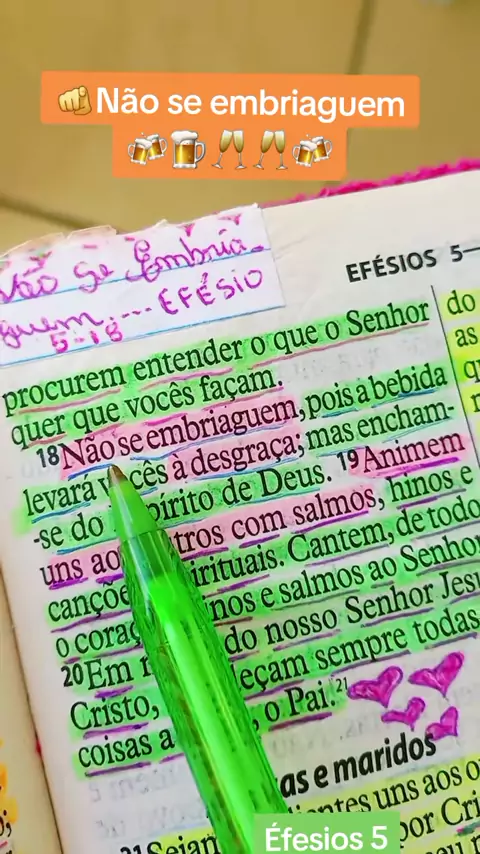 Não se embriaguem
Não Se Embria-
guem.... EFÉSIO
5-18
EFÉSIOS 5
procurem entender o que o Senhor
quer que vocês façam.
18Não se embriaguem, pois a bebida
levará vocês à desgraça; mas encham-
-se do Espírito de Deus. 19Animem
uns aos outros com salmos, hinos e
canções espirituais. Cantem, de todo
o coração, hinos e salmos ao Senhor
20Em do nosso Senhor Jesu
Cristo, agradeçam sempre todas
coisas a , o Pai.21
as e maridos
21Sejam obedientes uns aos
por Cri
do
as
Éfesios 5